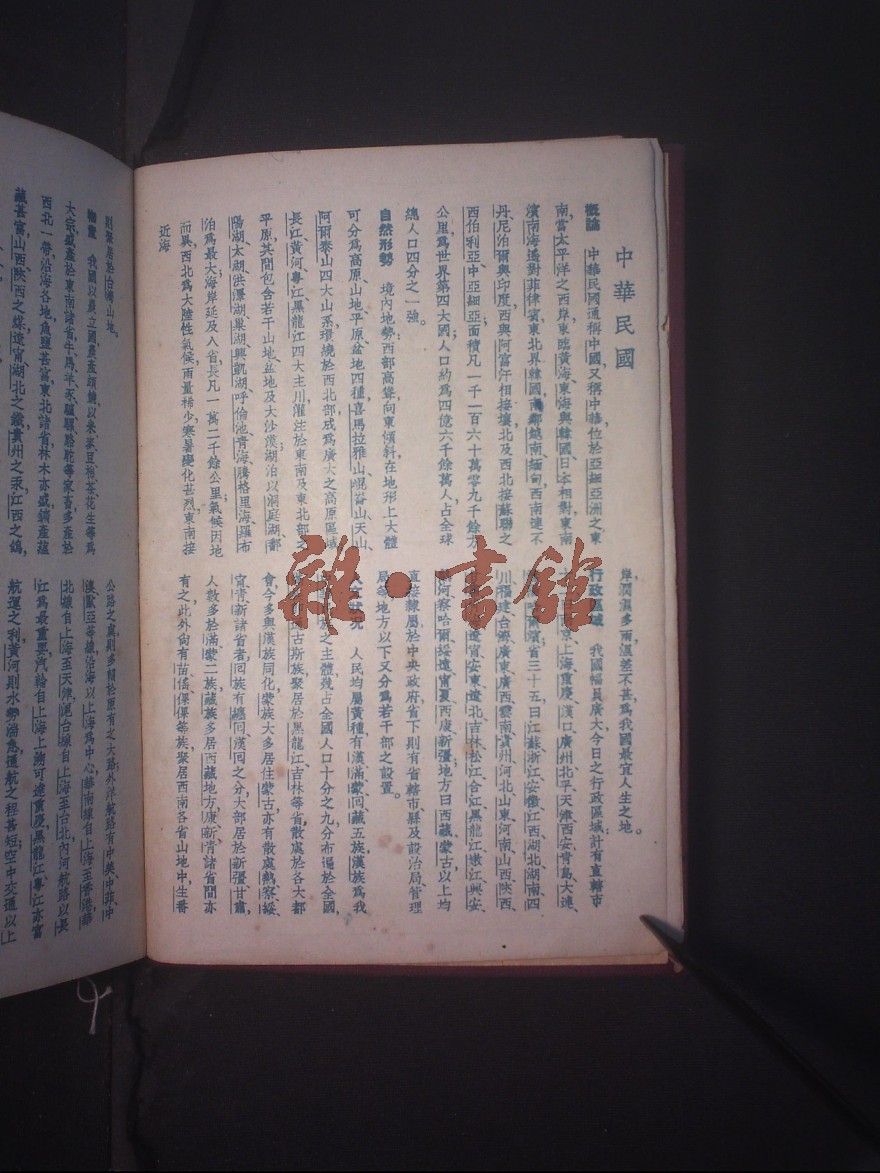 中華民國
概論　中華民國通稱中國,又稱中華,位於亞細亞洲之東
南,當太平洋之西岸,東臨黃海、東海與韓國、日本相對,東南
濱南海遙對菲律賓,東北界韓國,南鄰越南、緬甸,西南連不
丹、尼泊爾與印度,西與阿富汗相接壤,北及西北接蘇聯之
西伯利亞、中亞細亞,面積凡一千一百六十萬零九千餘方
公里,爲世界第四大國;人口約爲四億六千餘萬人,占全球
總人口四分之一強。
自然形勢　境內地勢,西部高聳,向東傾斜,在地形上大體
可分爲高原、山地、平原、盆地四種,喜馬拉雅山、崑崙山、天山、
阿爾泰山四大山系環繞於西北部,成爲廣大之高原區域,
長江、黃河、粵江、黑龍江四大主川灌注於東南及東北部之
平原,其間包含若干山地、盆地及大沙漠,湖泊以洞庭湖、鄱
陽湖、太湖、洪澤湖、巢湖、興凱湖、呼倫池、青海、騰格里海、羅布
泊爲最大;海岸延及八省,長凡一萬二千餘公里,氣候因地
而異,西北爲大陸性氣候,雨量稀少,寒暑變化甚烈,東南接
近海
岸,潤濕多雨,溫差不甚,爲我國最宜人生之地。
行政區域　我國幅員廣大,今日之行政區域,計有直轄市
京、上海、重慶、漢口、廣州、北平、天津、西安、青島、大連、
哈爾濱,省三十五,曰江蘇、浙江、安徽、江西、湖北、湖南、四
川、福建、台灣、廣東、廣西、雲南、貴州、河北、山東、河南、山西、陝西、
遼甯、安東、遼北、吉林、松江、合江、黑龍江、嫩江、興安、
熱河、察哈爾、綏遠、甯夏、西康、新疆,地方曰西藏、蒙古,以上均
直接隸屬於中央政府,省下則有省轄市、縣及設治局、管理
局等,地方以下又分爲若干部之設置。
人文狀況　人民均屬黃種,有漢、滿、蒙、回、藏五族,漢族爲我
之主體,殘占全國人口十分之九,分布遍於全國,
古斯族,聚居於黑龍江、吉林等省,散處於各大都
會,今多與漢族同化,蒙族大多居住蒙古,亦有散處熱、察、綏、
甯、青、新諸省者,回族有纏回、漢回之分,大部居於新疆、甘肅,
人數多於滿、蒙二族,藏族多居西藏地方,康、新、青諸省間亦
有之,此外尙有苗、傜、倮倮等族,聚居西南各省山地中,生番
則聚居於台灣山地。
物產　我國以農立國,農產頗饒,以米、麥、豆、棉、茶、花生等爲
大宗,盛產於東南諸省,牛、馬、羊、豕、驢、騾、駱駝等家畜,多產於
西北一帶,沿海各地,魚鹽甚富,東北諸省,林木亦盛,鑛產蘊
藏甚富,山西、陝西之煤,遼甯、湖北之鐵,貴州之汞,江西之鎢,
公路之處,則多賴於原有之大路,外洋航路有中美、中菲、中
澳、歐亞等線,沿海以上海爲中心,華南線自上海至香港,華
北線自上海至天津,滬台線自上海至台北,內河航路以長
江爲最重要,汽輪自上海上溯,可達重慶,黑龍江、粵江亦富
航運之利,黃河則水勢湍急,通航之程甚短,空中交通以上
雜·書館